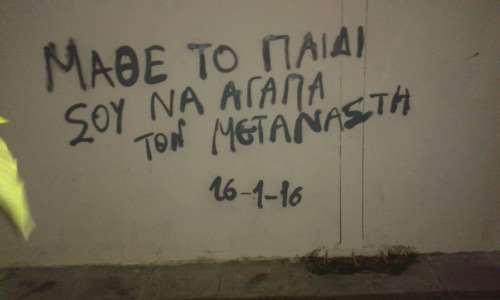 ΜΑΘΕ ΤΟ ΠΑΙΔΙ
ΣΟΥ ΝΑ ΑΓΑΠΑ
ΤΟΝ ΜΕΤΑΝΑΣΤΗ
16-1-16